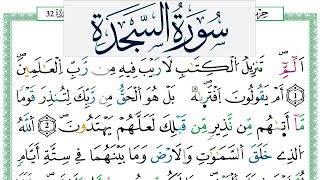 32
سُورَةُ السَّجْدَةِ
أَلَٓمِّٓۖ تَنزِيلُ اُلْكِتَٰبِ لَا رَيْبَ فِيهِ مِن رَّبِّ اِلْعَٰلَمِينَۖ
1 أَمْ يَقُولُونَ اَفْتَر۪يٰهُۖ بَلْ هُوَ اَلْحَقُّ مِن رَّبِّكَ لِتُنذِرَ قَوْماً
مَّآ أَت۪يٰهُم مِّن نَّذِيرٍ مِّن قَبْلِكَ لَعَلَّهُمْ يَهْتَدُونَۖ 2
اَلذِے خَلَقَ اَلسَّمَٰوَٰتِ وَالَارْضَ وَمَا بَيْنَهُمَا فِے سِتَّةِ أَيَّامٍ